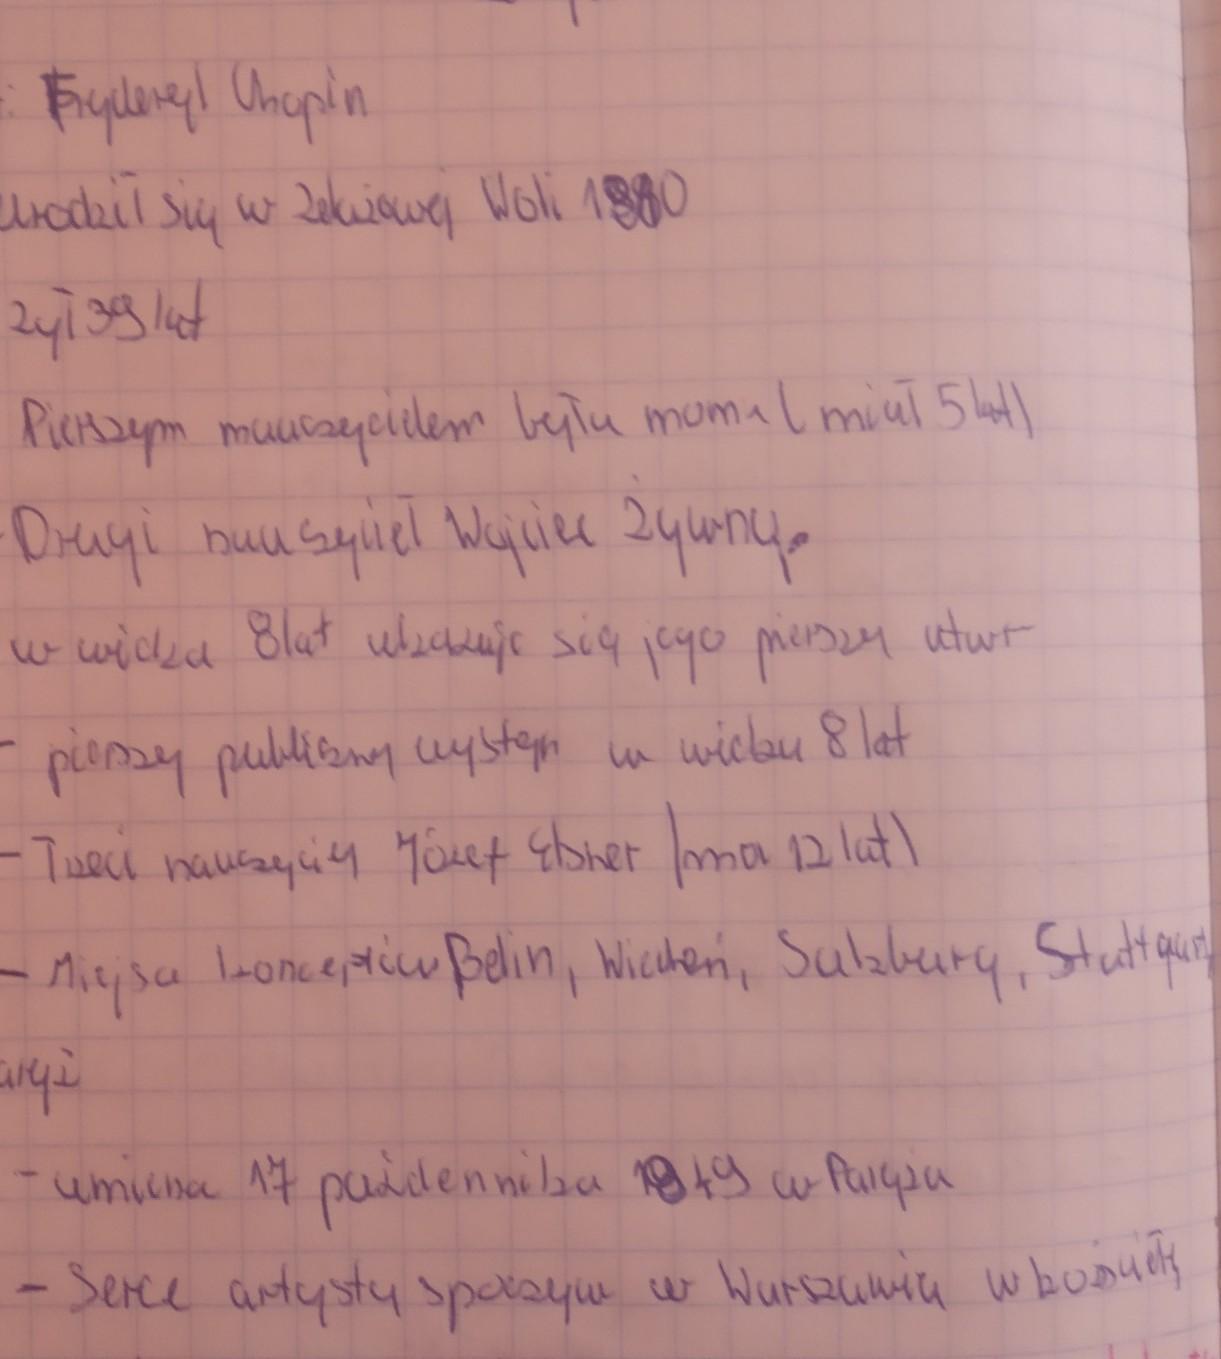 : Fryderyk Chopin
urodził się w Żelazowej Woli 1810
żył 39 lat
Pierszym nauczycielem była mama (miał 5 lat)
- Drugi nauczyciel Wojciec Żywny.
w wieku 8 lat ukazuje się jego pierszy utwr
- pierszy publiczny występ w wieku 8 lat
- Trzeci nauczyciel Józef Elsner (ma 12 lat)
- Miejsa koncertów Belin, Wiedeń, Salzburg, Stuttgart,
aryż
- umiera 17 października 1849 w Paryżu
- Serce artysty spoczywa w Warszawie w kościele